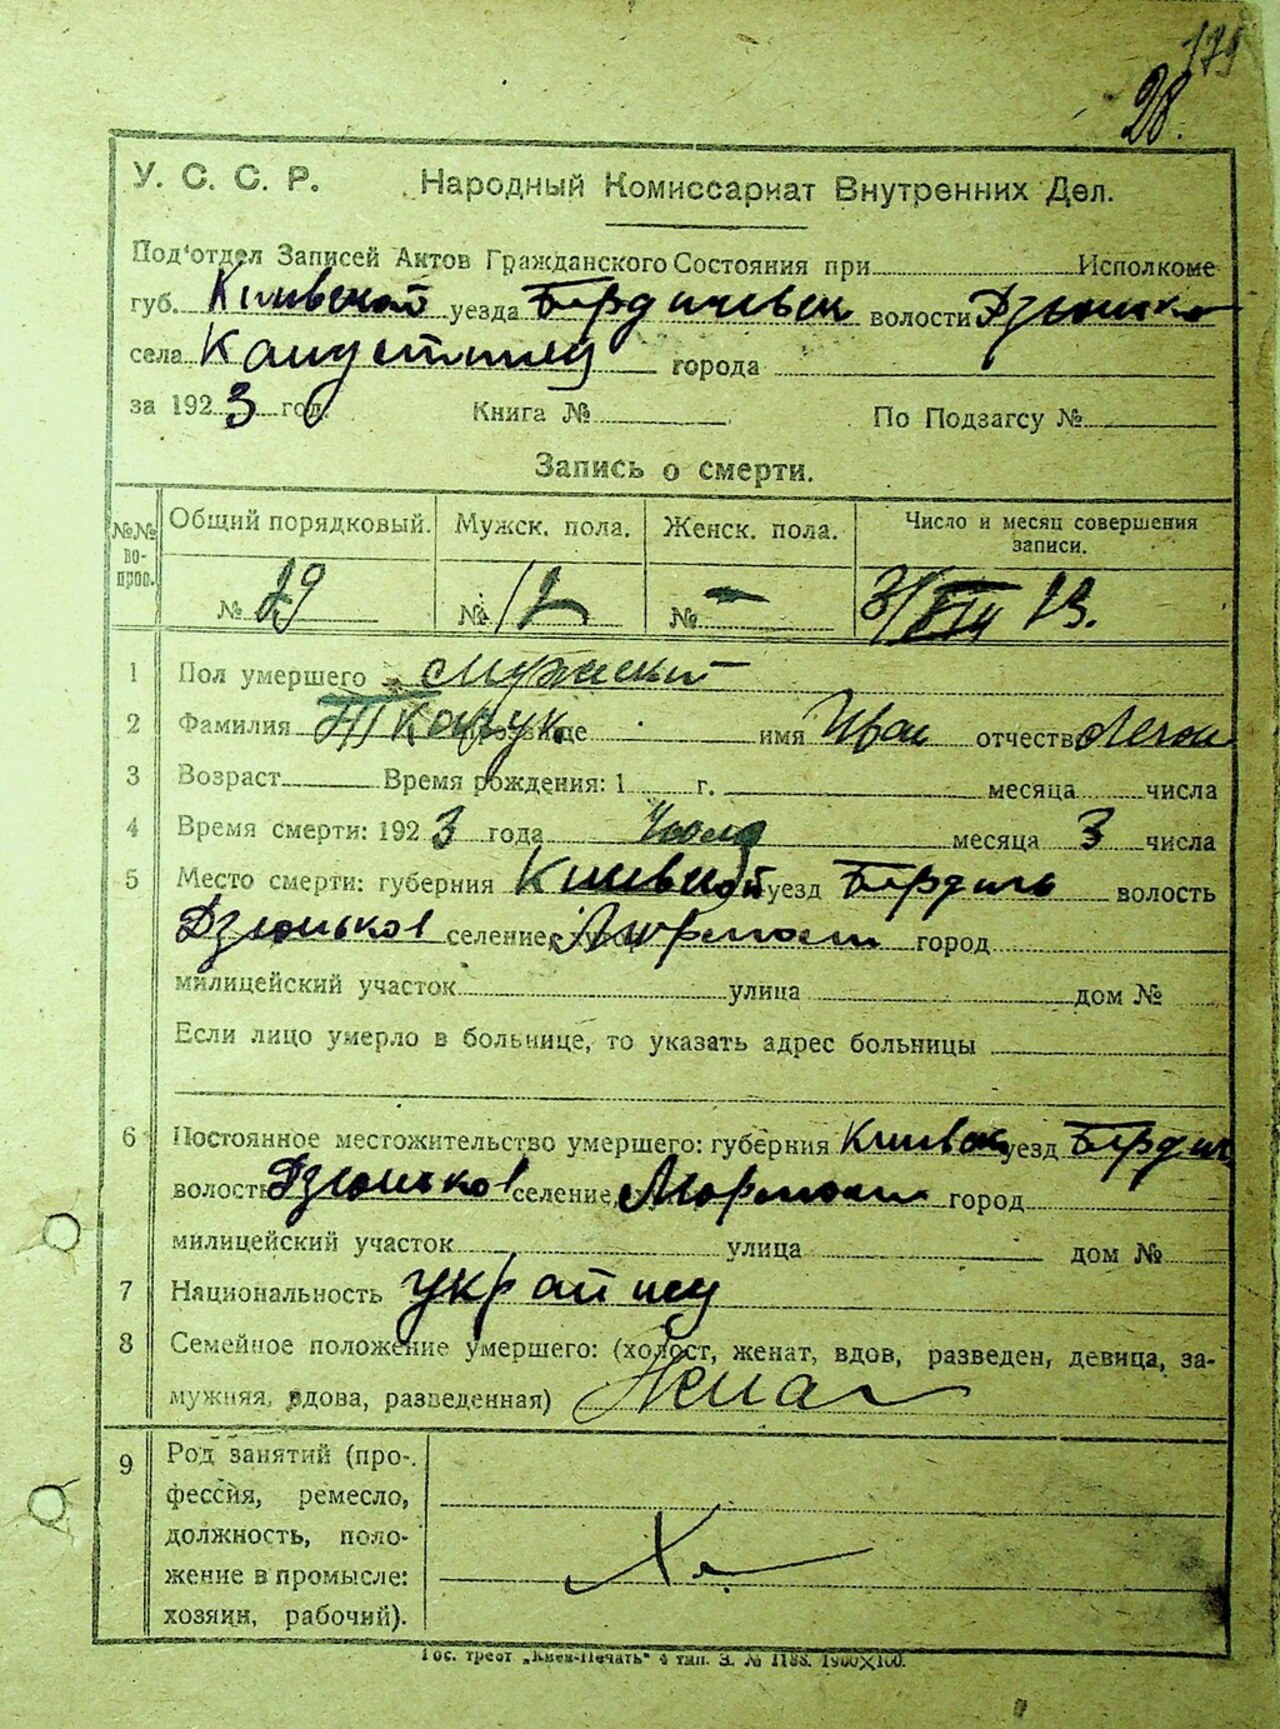 179
28.
У. С. С. Р. Народный Комиссариат Внутренних Дел.
Под'отдел Записей Актов Гражданского Состояния при Исполкоме
губ. Киевской уезда Бердичевск волости Дзюнько
села Капустинцу города
за 1923 год. Книга № По Подзагсу №
Запись о смерти.
№№ вопрос. Общий порядковый. Мужск. пола. Женск. пола. Число и месяц совершения записи.
№ 29 № 12 № — 3/VIII 23.
1 Пол умершего Мужский
2 Фамилия прозвище имя Иван отчество
3 Возраст Время рождения: 1 г. месяца числа
4 Время смерти: 1923 года месяца 3 числа
5 Место смерти: губерния Киевской уезд Бердичь волость
Дзюньков селение, город
милицейский участок улица дом №
Если лицо умерло в больнице, то указать адрес больницы
6 Постоянное местожительство умершего: губерния Киевск уезд Бердич
волость Дзюньков селение, город
милицейский участок улица дом №
7 Национальность украйнец
8 Семейное положение умершего: (холост, женат, вдов, разведен, девица, за-
мужняя, вдова, разведенная)
9 Род занятий (про-
фессия, ремесло,
должность, поло-
жение в промысле:
хозяин, рабочий).
Х.
Гос. трест „Киев-Печать" 4 тип. З. № 1188. 1900Х100.